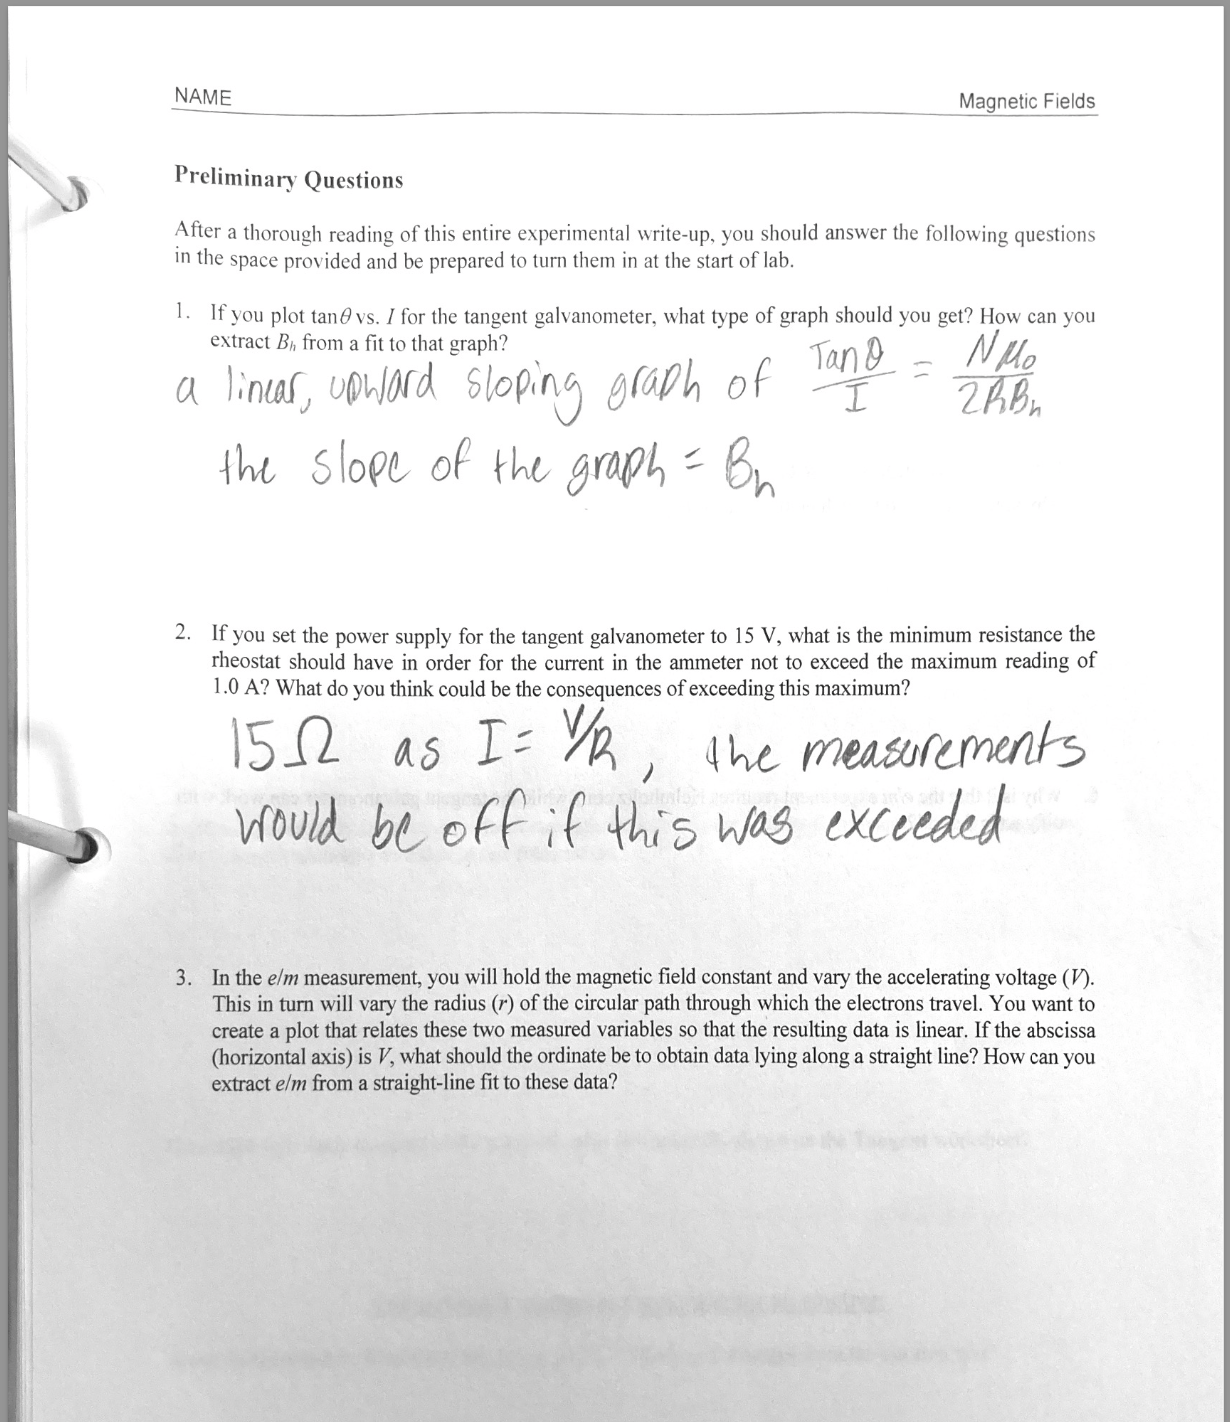 NAME
Magnetic Fields
Preliminary Questions
After a thorough reading of this entire experimental write-up, you should answer the following questions
in the space provided and be prepared to turn them in at the start of lab.
1. If you plot tanθ vs. I for the tangent galvanometer, what type of graph should you get? How can you
extract Bₕ from a fit to that graph?
a linear, upward sloping graph of Tanθ/I = Nμ₀/2RBₕ
the slope of the graph = Bₕ
2. If you set the power supply for the tangent galvanometer to 15 V, what is the minimum resistance the
rheostat should have in order for the current in the ammeter not to exceed the maximum reading of
1.0 A? What do you think could be the consequences of exceeding this maximum?
15Ω as I = V/R, the measurements
would be off if this was exceeded
3. In the e/m measurement, you will hold the magnetic field constant and vary the accelerating voltage (V).
This in turn will vary the radius (r) of the circular path through which the electrons travel. You want to
create a plot that relates these two measured variables so that the resulting data is linear. If the abscissa
(horizontal axis) is V, what should the ordinate be to obtain data lying along a straight line? How can you
extract e/m from a straight-line fit to these data?